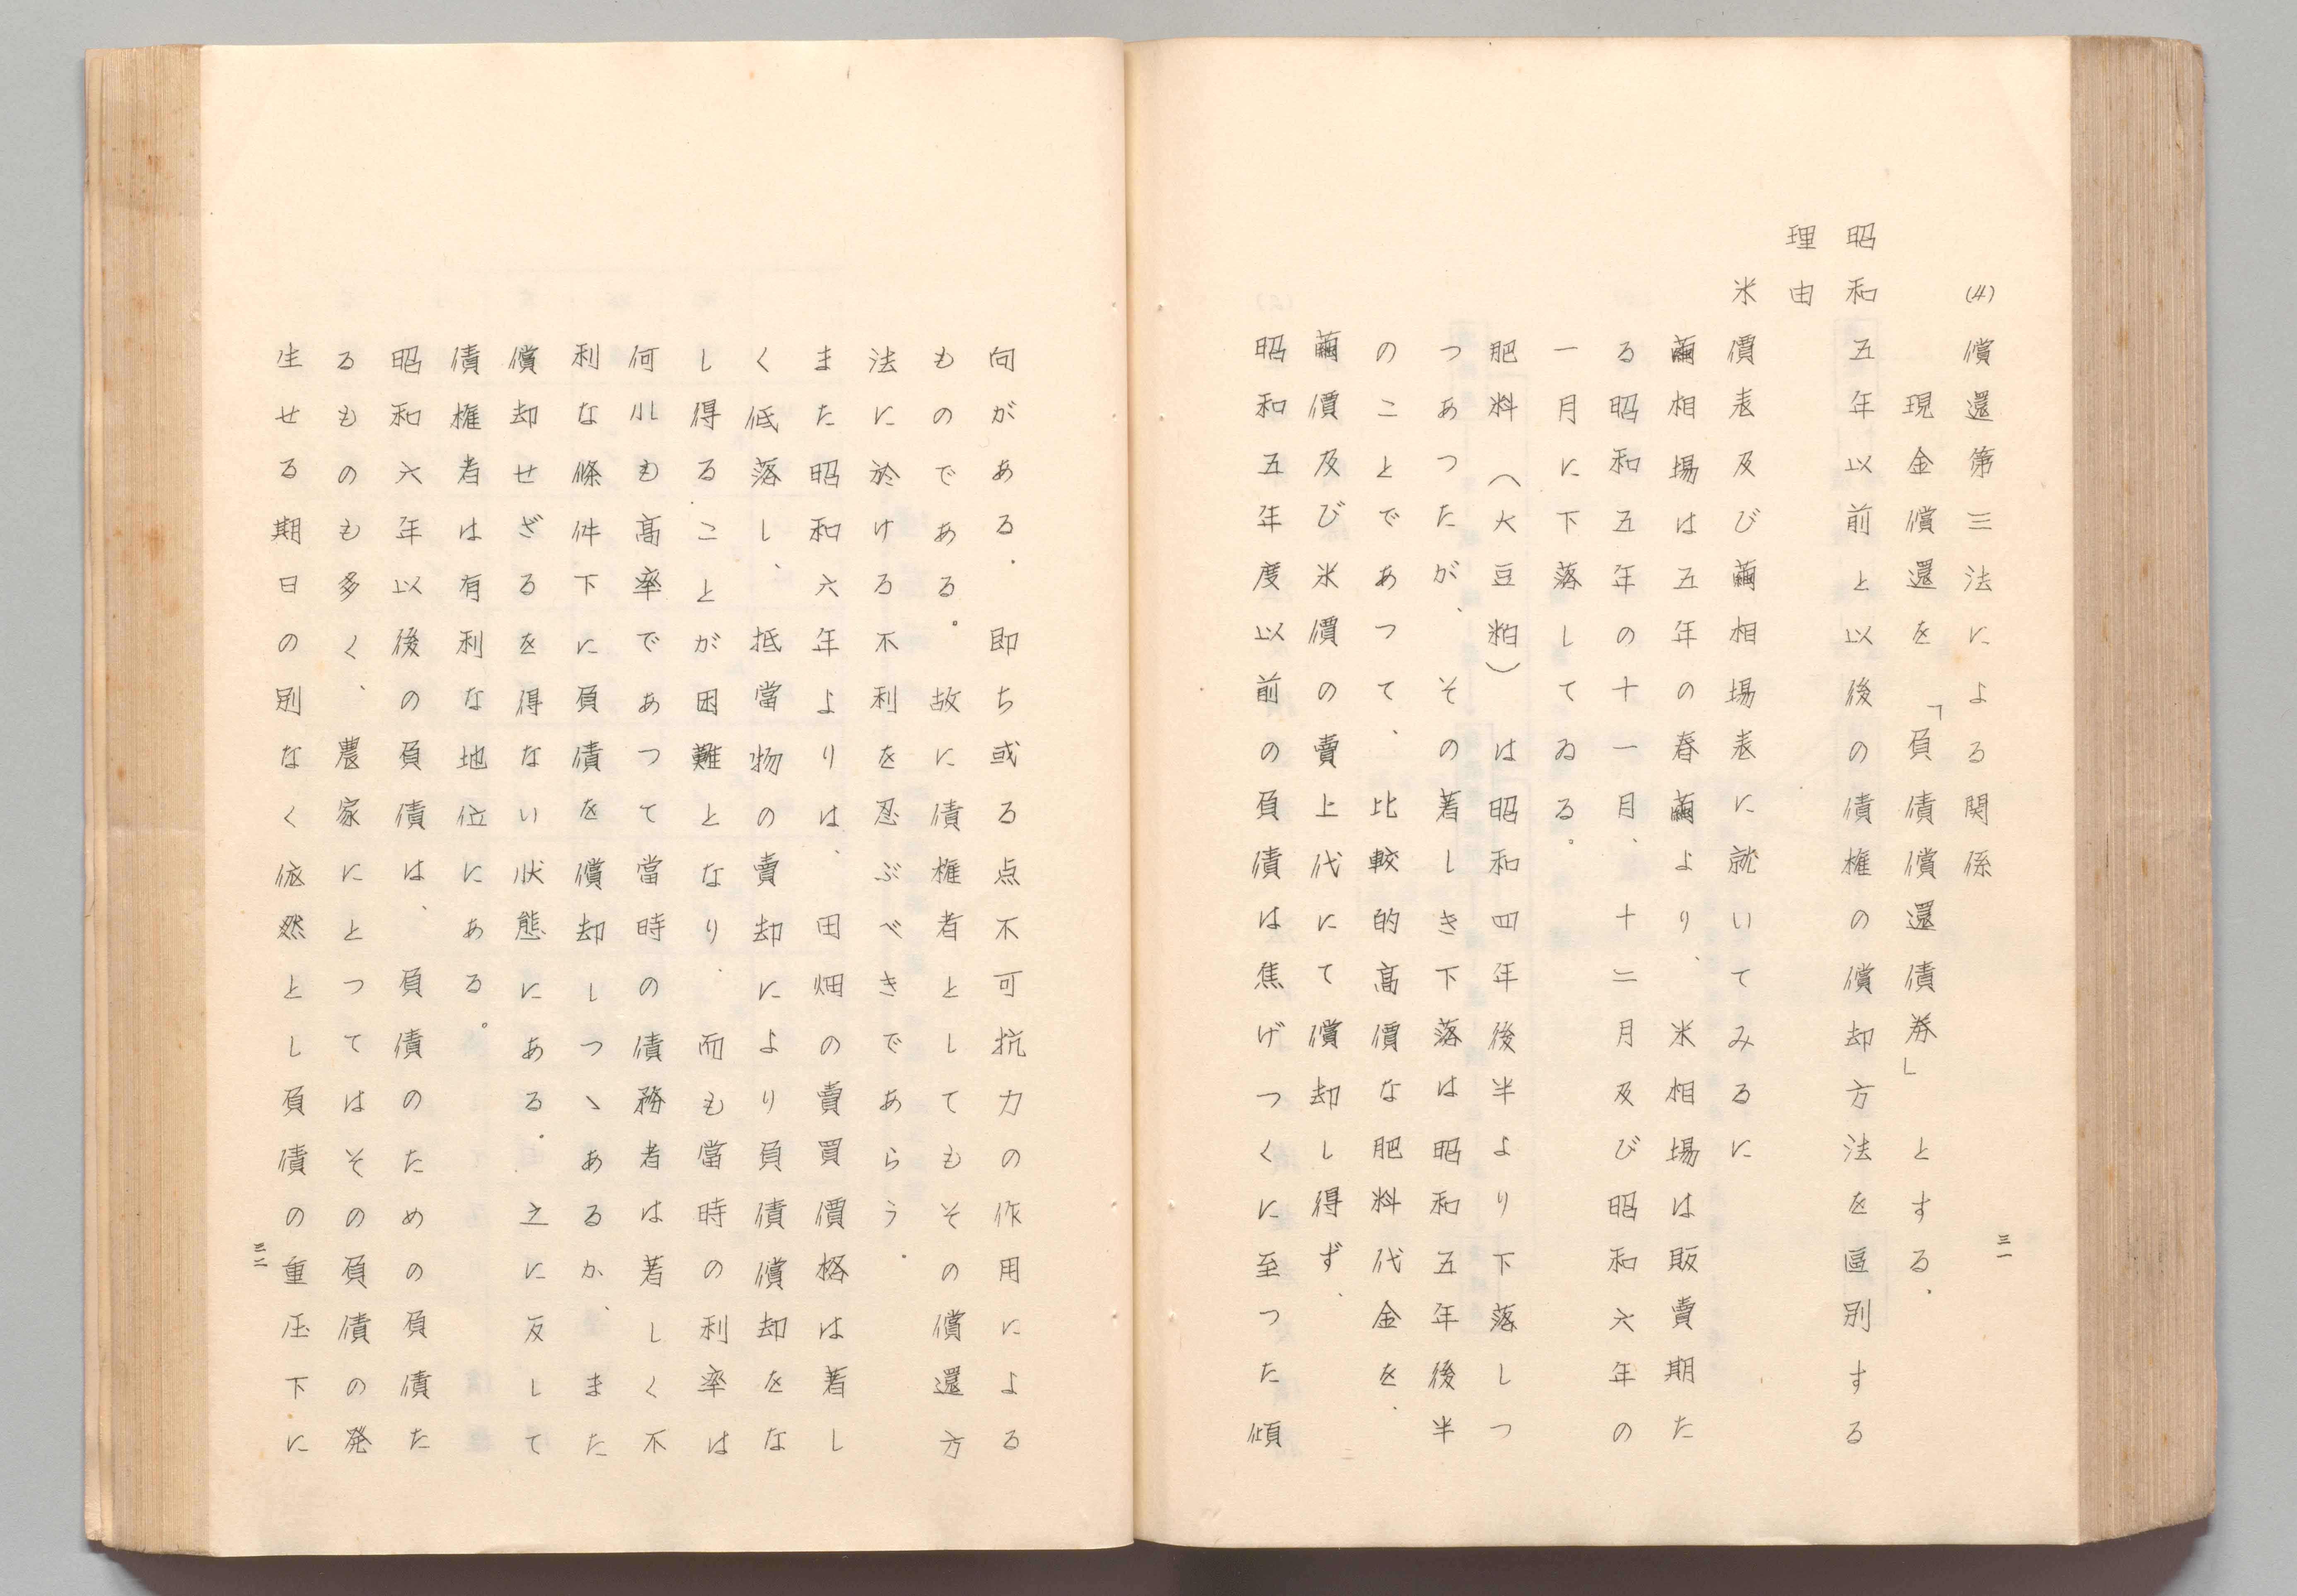 (4)償還第三法による関係
現金償還を「負債償還債券」とする.
昭和五年以前と以後の債権の償却方法を區別する
理由
米價表及び繭相場表に就いてみるに
繭相場は五年の春繭より、米相場は販賣期た
る昭和五年の十一月、十二月及び昭和六年の
一月に下落してゐる。
肥料(大豆粕)は昭和四年後半より下落しつ
つあつたが、その著しき下落は昭和五年後半
のことであつて、比較的高價な肥料代金を、
繭價及び米價の賣上代にて償却し得ず、
昭和五年度以前の負債は焦げつくに至つた傾
三一
向がある.即ち或る点不可抗力の作用による
ものである。故に債権者としてもその償還方
法に於ける不利を忍ぶべきであらう.
また昭和六年よりは、田畑の賣買價格は著し
く低落し、抵當物の賣却により負債償却をな
し得ることが困難となり.而も當時の利率は
何れも高率であつて當時の債務者は著しく不
利な條件下に負債を償却しつゝあるか、また
償却せざるを得ない状態にある.之に反して
債権者は有利な地位にある。
昭和六年以後の負債は、負債のための負債た
るものも多く、農家にとつてはその負債の発
生せる期日の別なく依然とし負債の重圧下に
三二